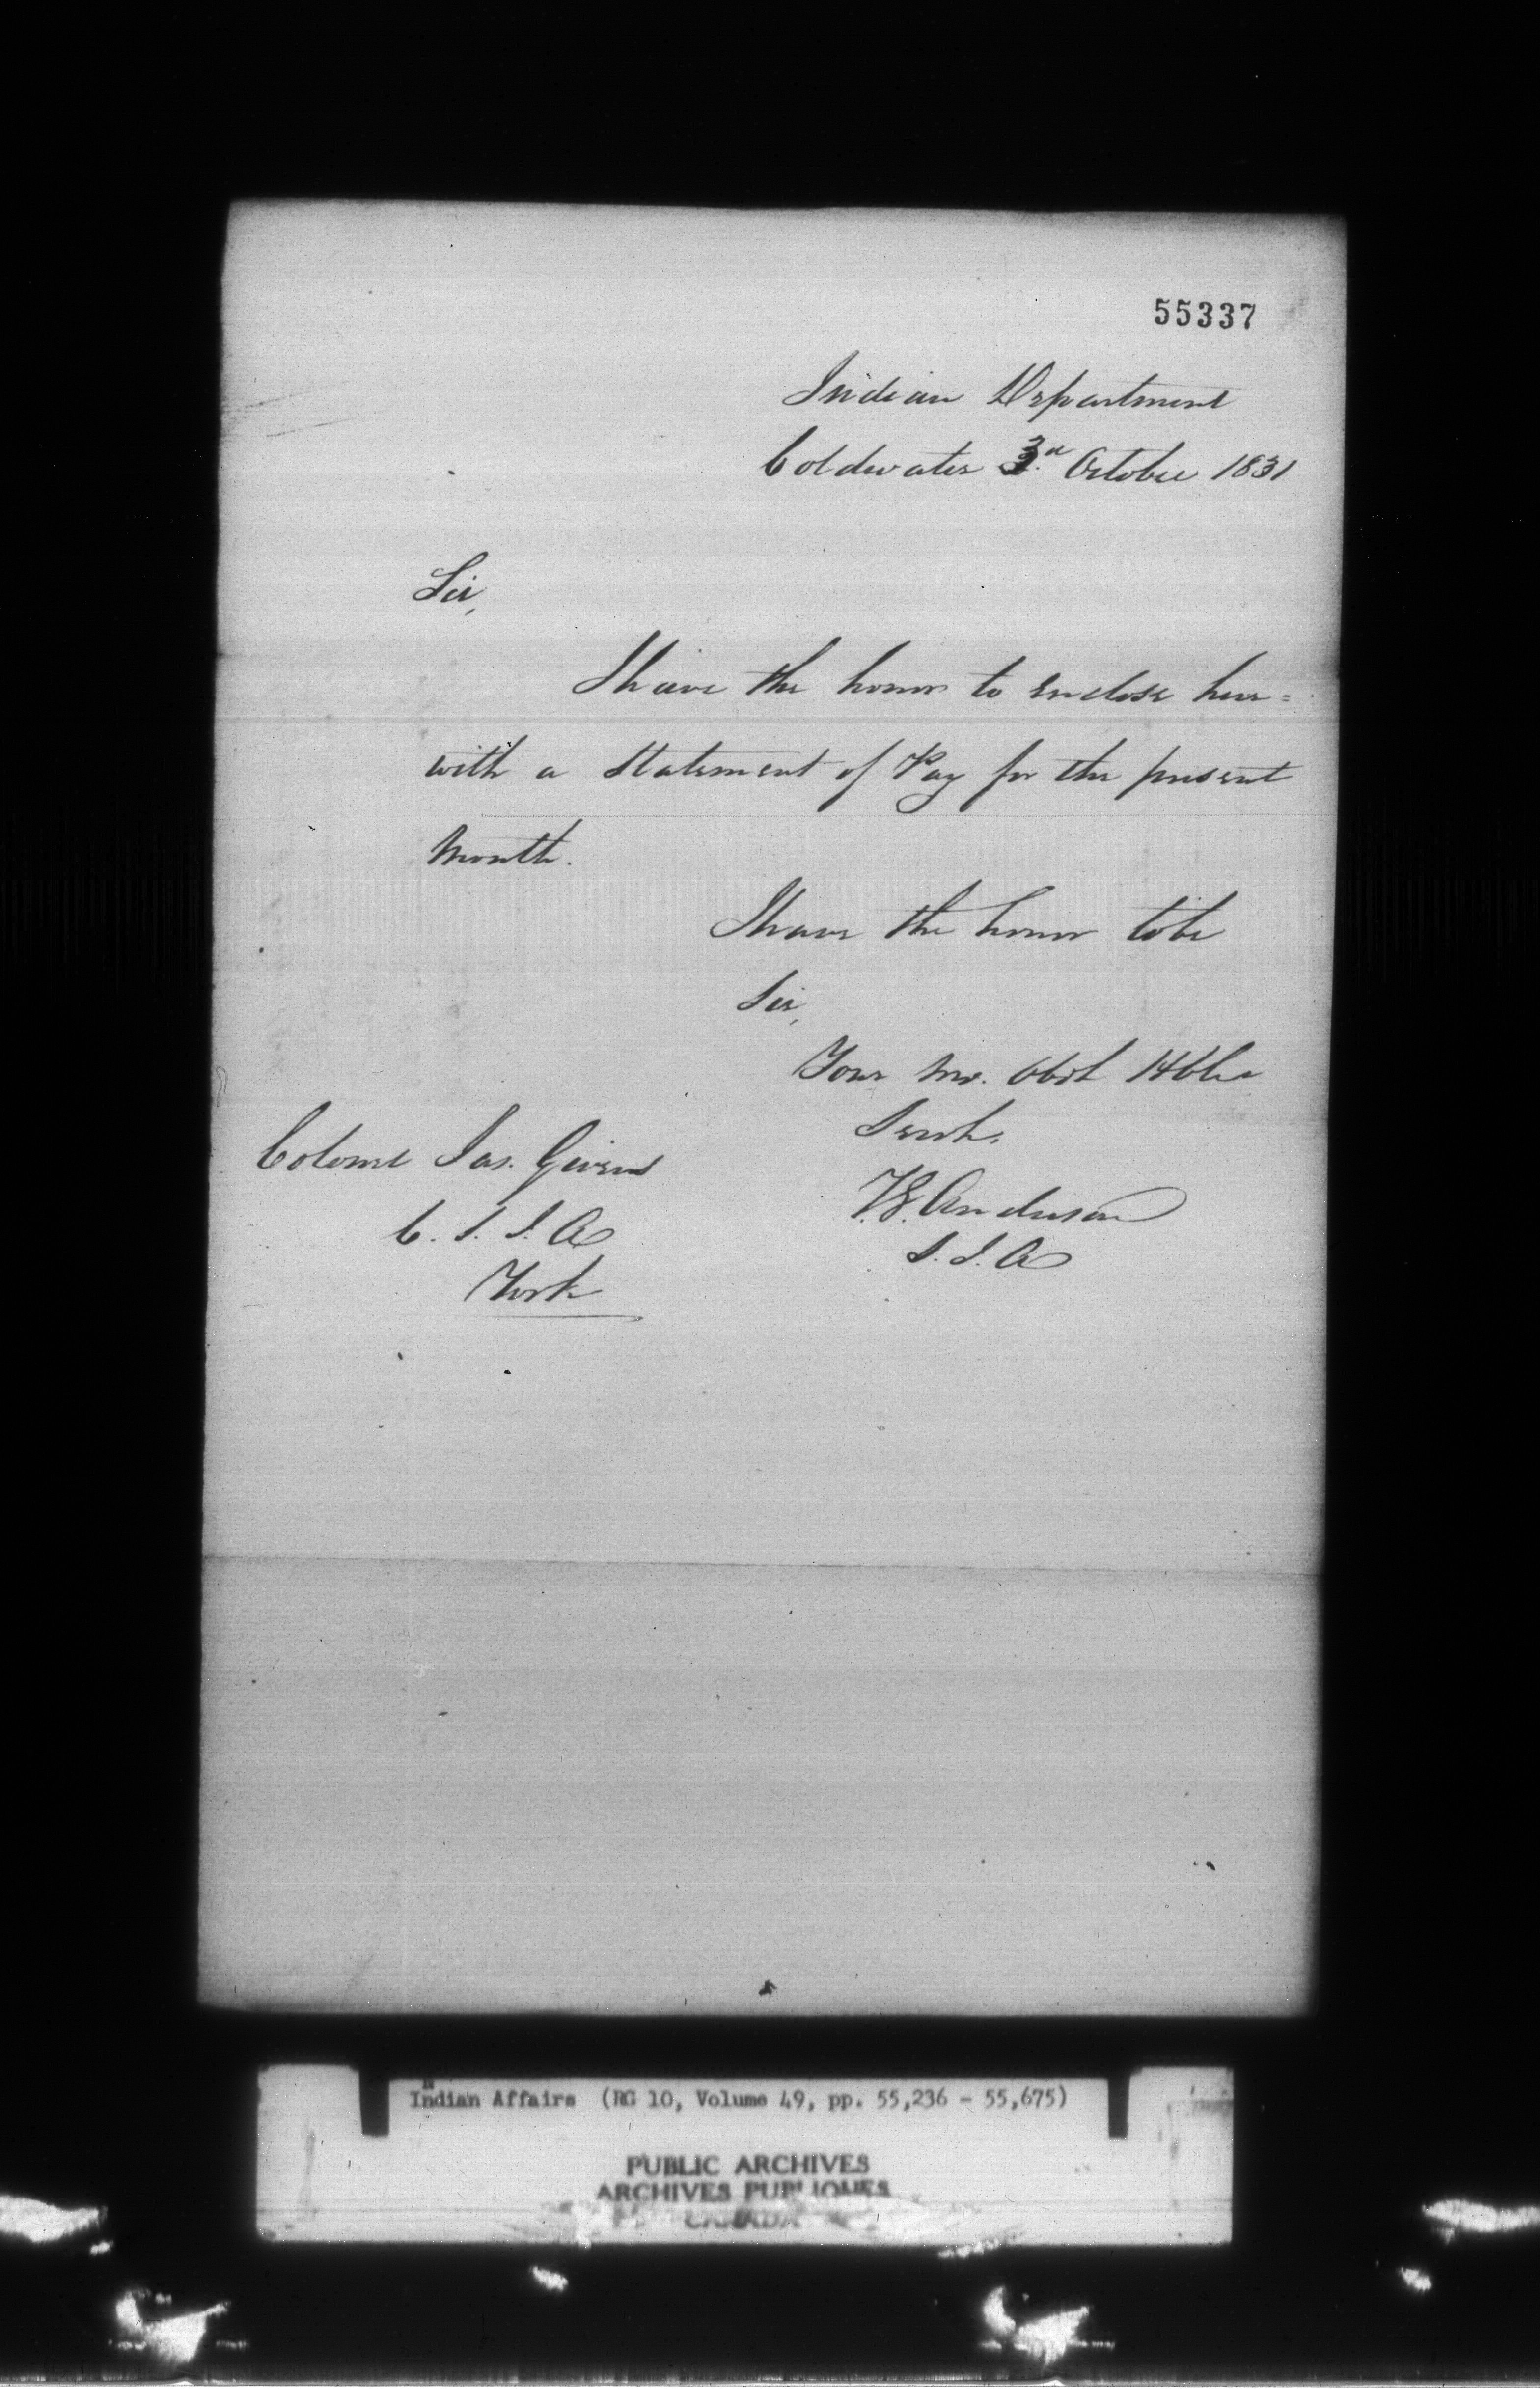 55337
Indian Department
Coldwater 3rd October 1831
Sir,
I have the honor to enclose here=
with a Statement of Pay for the present
Month.
I have the honor to be
Sir,
Your Mo. Obdt Hble
Servt.
T.G. Anderson
S.I.A
Colonel Jas. Givins
C.S.I.A
York
Indian Affairs (RG 10, Volume 49, pp. 55,236 - 55,675)
PUBLIC ARCHIVES
ARCHIVES PUBLIQUES
CANADA